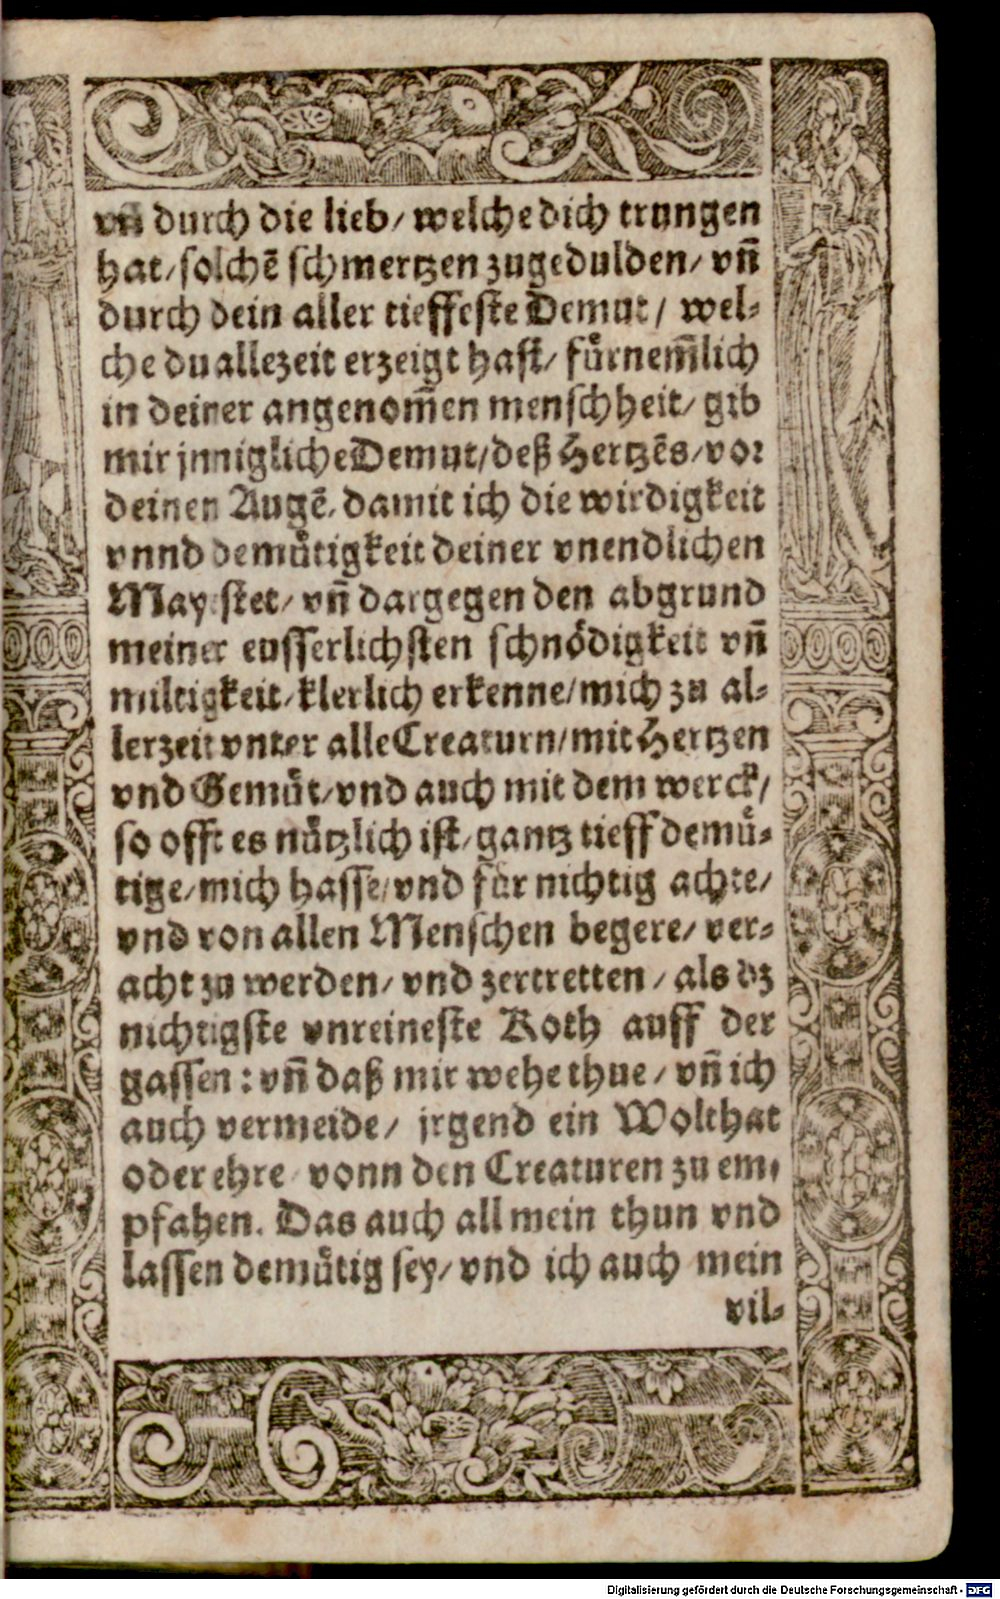 vñ durch die lieb/ welche dich trungen
hat/ solchẽ schmertzen zugedulden/ vñ
durch dein aller tieffeste Demut/ wel-
che du allezeit erzeigt hast/ fürnem̃lich
in deiner angenom̃en menschheit/ gib
mir jnnigliche Demut/ deß Hertzẽs/ vor
deinen Augẽ/ damit ich die wirdigkeit
vnnd demütigkeit deiner vnendlichen
Mayestet/ vñ dargegen den abgrund
meiner eusserlichsten schnödigkeit vñ
miltigkeit/ klerlich erkenne/ mich zu al-
lerzeit vnter alle Creaturn/ mit Hertzen
vnd Gemüt/ vnd auch mit dem werck/
so offt es nützlich ist/ gantz tieff demü-
tige/ mich hasse/ vnd für nichtig achte/
vnd von allen Menschen begere/ ver-
acht zu werden/ vnd zertretten/ als dz
nichtigste vnreineste Koth auff der
gassen: vñ daß mir wehe thue/ vñ ich
auch vermeide/ jrgend ein Wolthat
oder ehre/ vonn den Creaturen zu em-
pfahen. Das auch all mein thun vnd
lassen demütig sey/ vnd ich auch mein
vil-
Digitalisierung gefördert durch die Deutsche Forschungsgemeinschaft - DFG